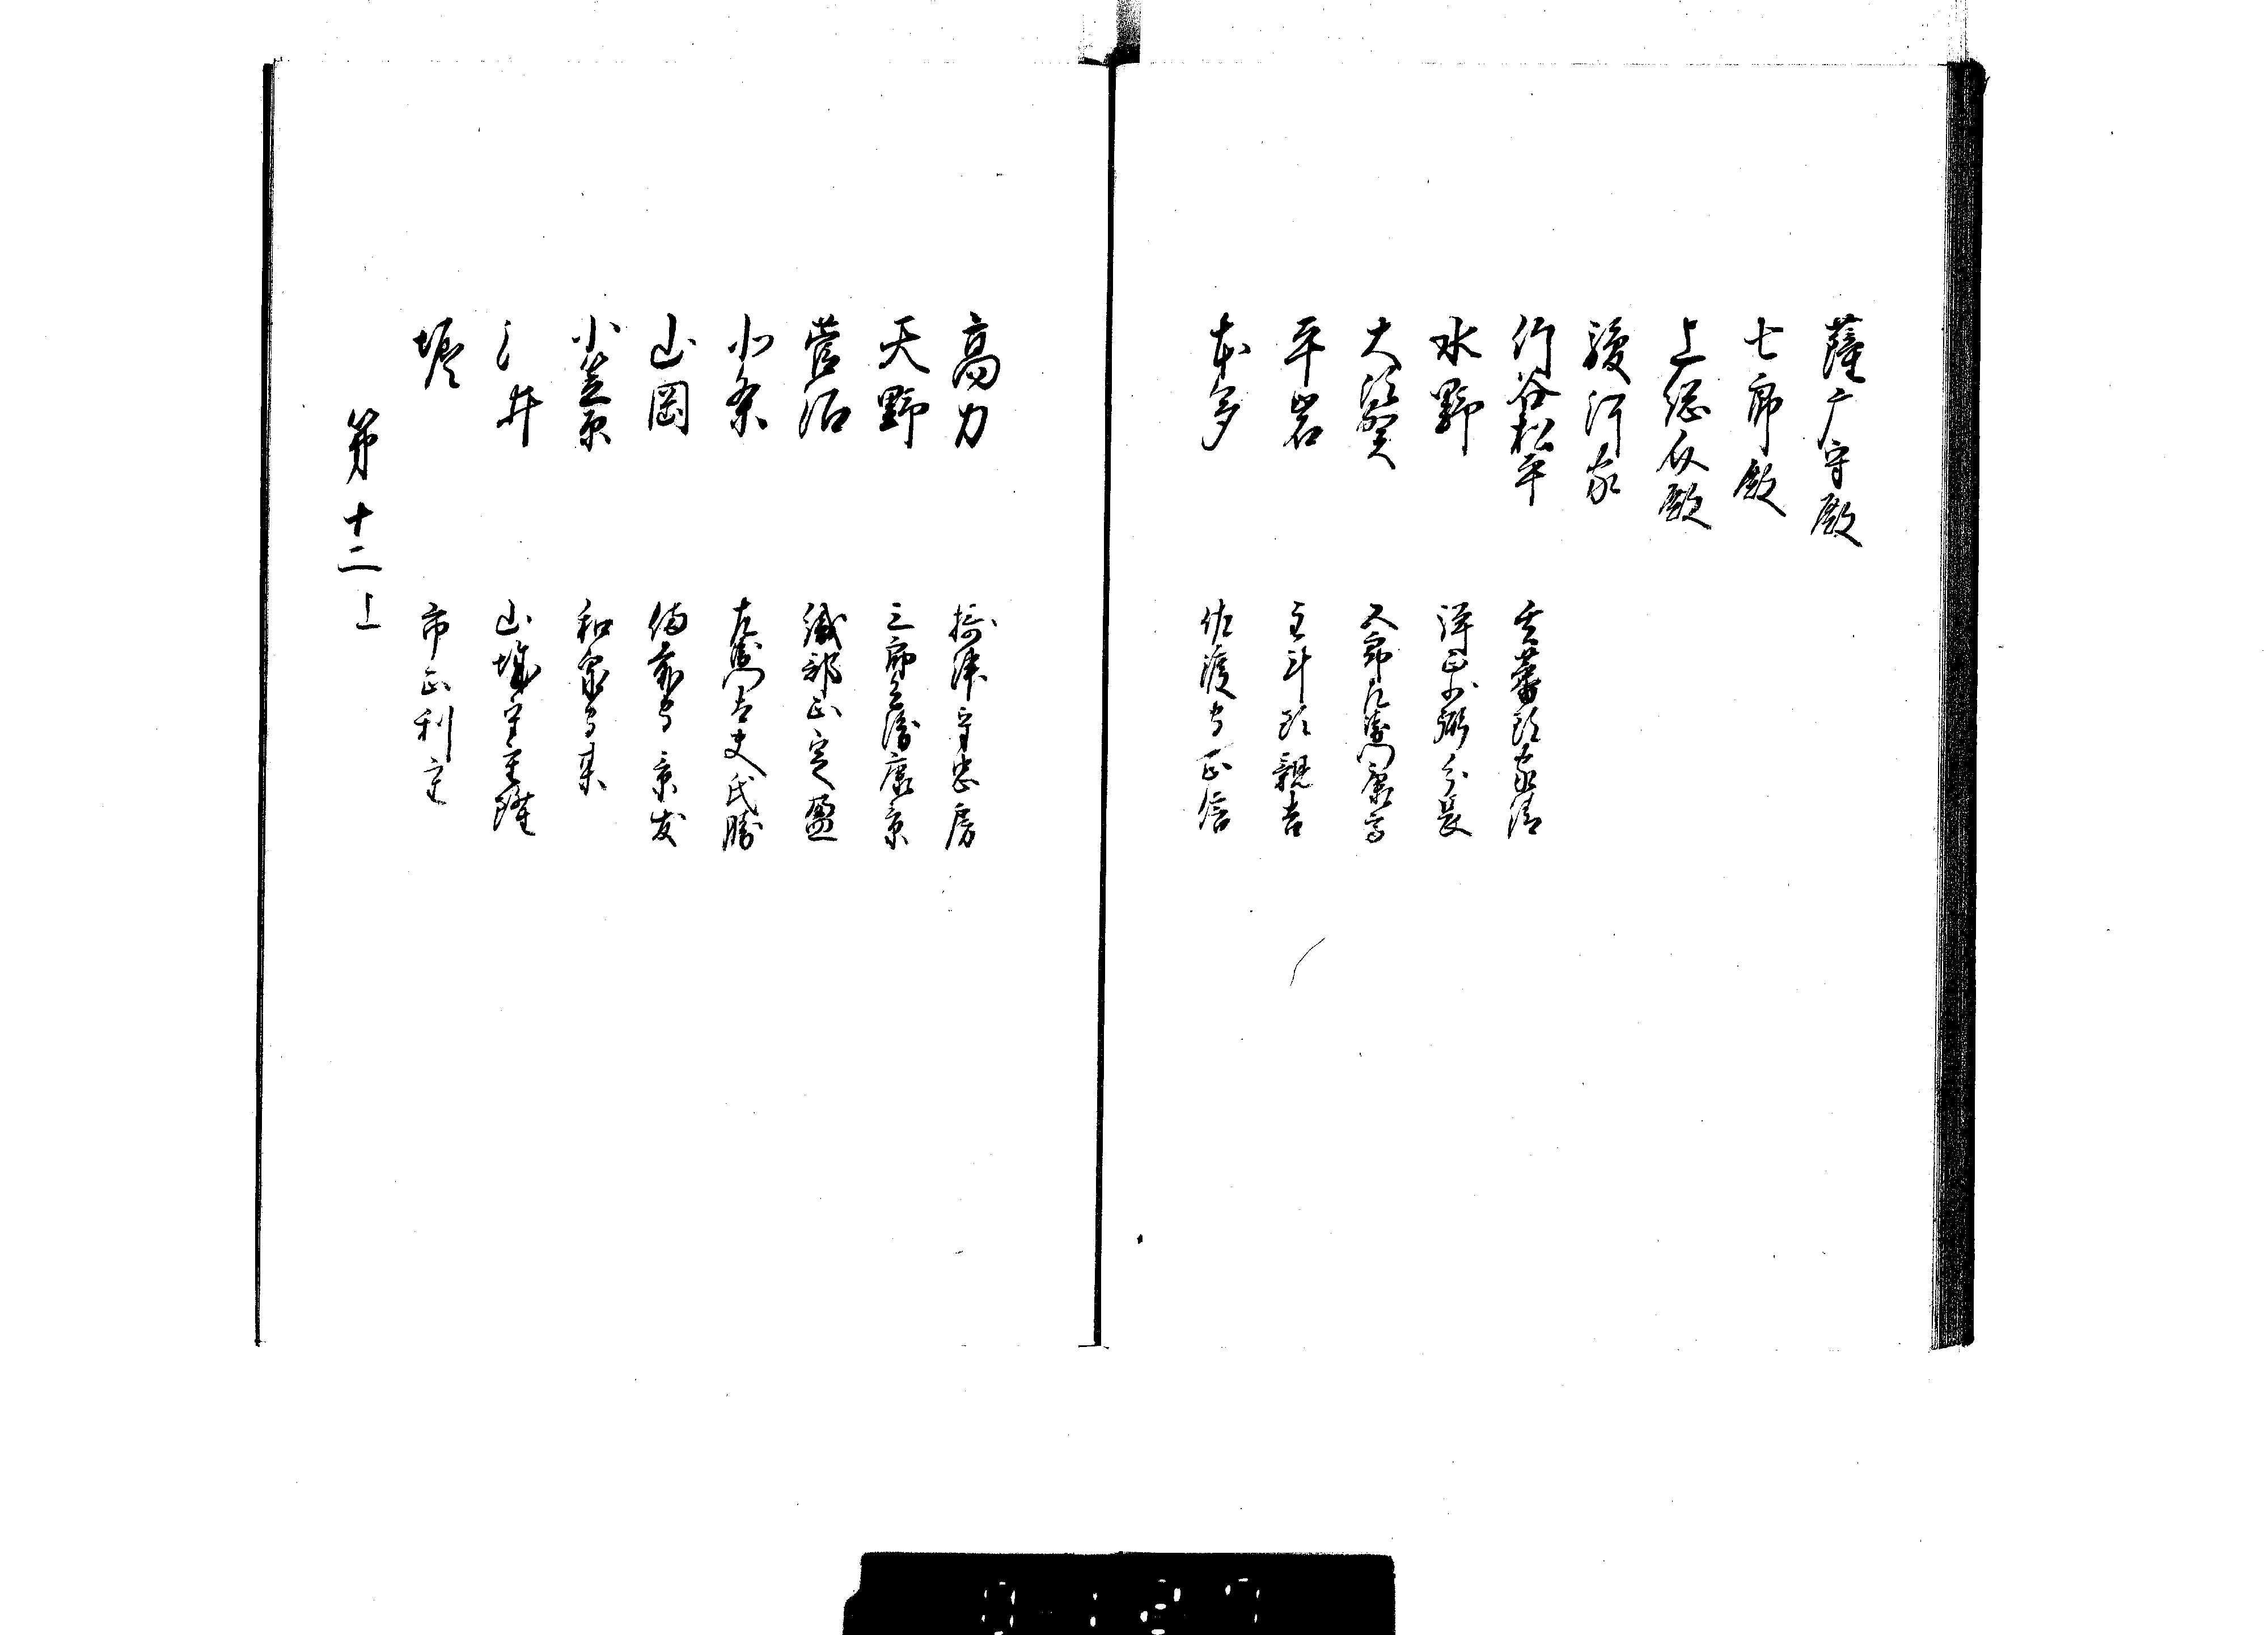 薩广守殿
七郎殿
上総介殿
駿河家
竹谷松平 玄蕃頭家清
水野 弾正少弼分長
大須賀 五郎左衛門康高
平岩 主計頭親吉
本多 佐渡守正信
高力 摂津守忠房
天野 三郎兵衛康景
菅沼 織部正定盈
北条 左衛門大夫氏勝
山岡 備前守景友
小笠原 和泉守某
山城守
堀 市正利重
第十二上